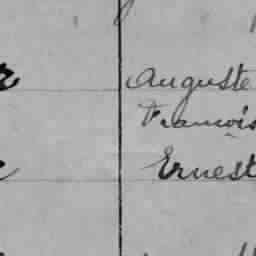 Auguste
François
Ernest